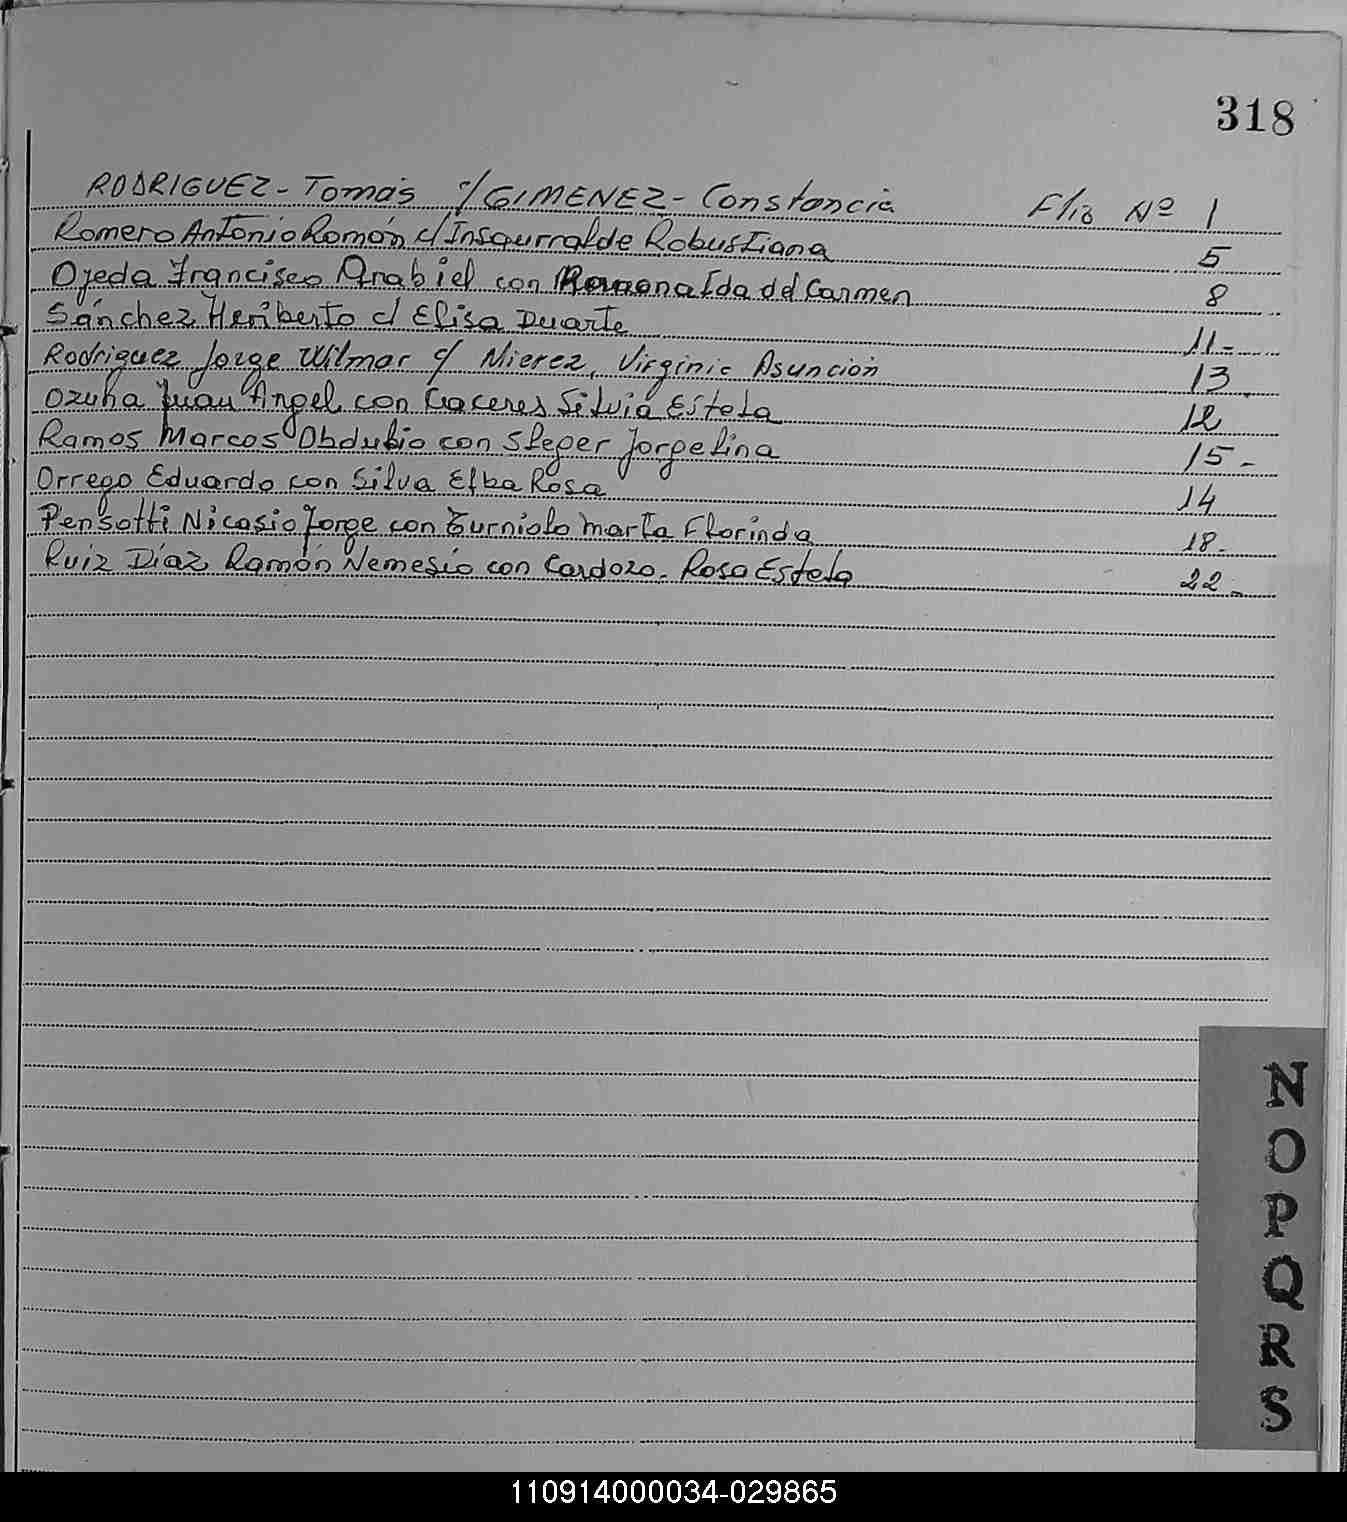 318
RODRIGUEZ - Tomás c/ GIMENEZ - Constancia Flio Nº 1
Romero Antonio Román c/ Insaurralde Robustiana 5
Ojeda Francisco Arabiel con del Carmen 8
Sánchez Heriberto c/ Elisa Duarte 11-
Rodriguez Jorge Wilmar c/ Mierez, Virginia Asunción 13
Ozuna Juan Angel con Caceres Silvia Estela 12
Ramos Marcos Obdulio con Sleger Jorgelina 15-
Orrego Eduardo con Silva Elba Rosa 14
Pensotti Nicasio Jorge con Marta Florinda 18-
Ruiz Díaz Ramón Nemesio con Cardozo. Rosa Estela 22-
N
O
P
Q
R
S
110914000034-029865